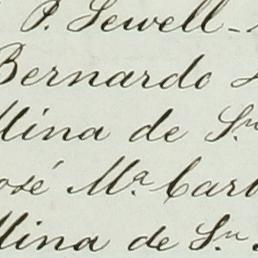 P. Sewell-
Bernardo
Mina de Sn
José Ma. Carb
Mina de Sn